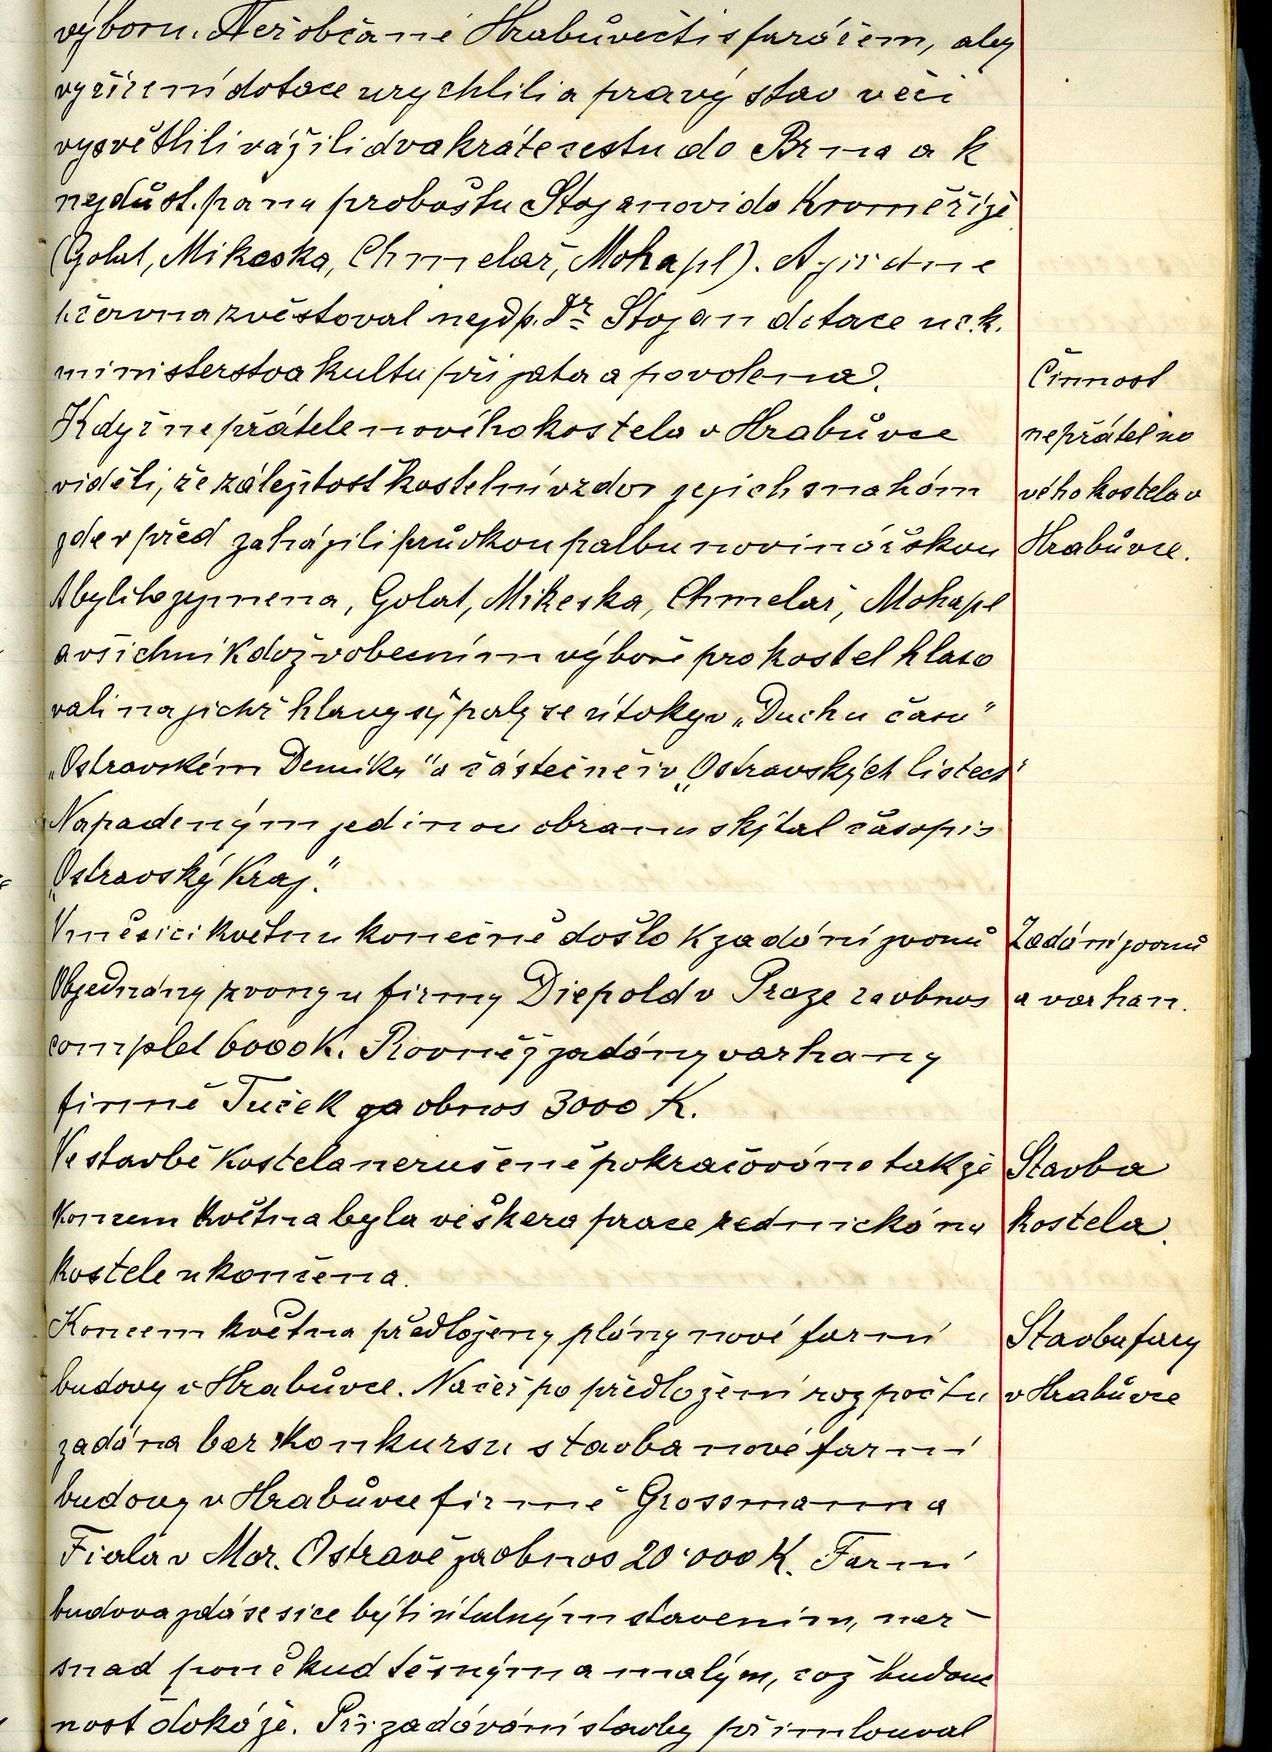 výboru. Než občané Hrabůvečtí s farářem, aby
vyřízení dotace urychlili a pravý stav věci
vysvětlili vážili dvakráte cestu do Brna a k
nejdůst. panu proboštu Stojanovi do Kroměříže
(Golat, Mikeska, Chmelař, Mohapl). A již dne
června zvěstoval nejdp. Dr Stojan dotace u c.k.
ministerstva kultu přijata a povolena.
Činnost
Když nepřátele nového kostela v Hrabůvce
nepřátel no
viděli, že záležitost kostelní vzdor jejich snahám
vého kostela v
jde v před zahájili průdkou palbu novinářskou
Hrabůvce.
A byli to zejmena, Golat, Mikeska, Chmelař, Mohapl
a všichni kdož v obecním výboře pro kostel hlaso
vali na jichž hlavy sýpaly se útoky v „Duchu času"
„Ostravském Deníku" a částečně i v „Ostravských listech"
Napadeným jedinou obranu skýtal časopis
„Ostravský Kraj".
V měsíci květnu konečně došlo k zadání zvonů
Zadání zvonů
Objednány zvony u firmy Diepold v Praze za obnos
a varhan.
complet 6000 K. Rovněž zadány varhany
firmě Tuček za obnos 3000 K.
Ve stavbě kostela nerušeně pokračováno takže
Stavba
koncem května byla veškera prace zednická na
kostela.
kostele ukončena.
Koncem května předloženy plány nové farní
Stavba fary
budovy v Hrabůvce. Načež po předložení rozpočtu
v Hrabůvce
zadána bez konkursu stavba nové farní
budovy v Hrabůvce firmě Grossmann a
Fiala v Mor. Ostravě za obnos 20·000 K. Farní
budova zdá se sice býti útulným stavením, než
snad poněkud těsným a malým, což budouc
nost dokáže. Při zadávání stavby přimlouval